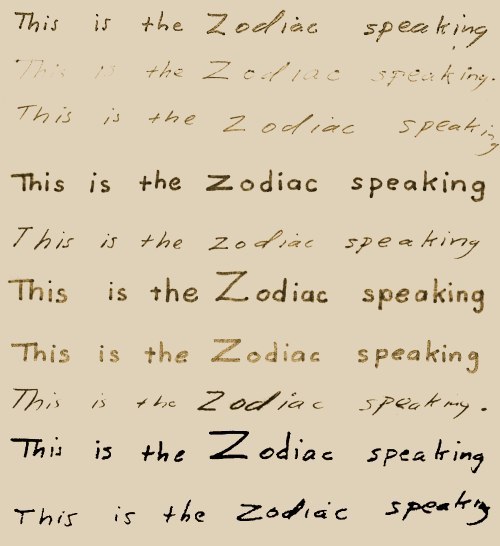 This is the Zodiac speaking
This is the Zodiac speaking.
This is the Zodiac speaking
This is the Zodiac speaking
This is the Zodiac speaking
This is the Zodiac speaking
This is the Zodiac speaking
This is the Zodiac speaking.
This is the Zodiac speaking
This is the Zodiac speaking